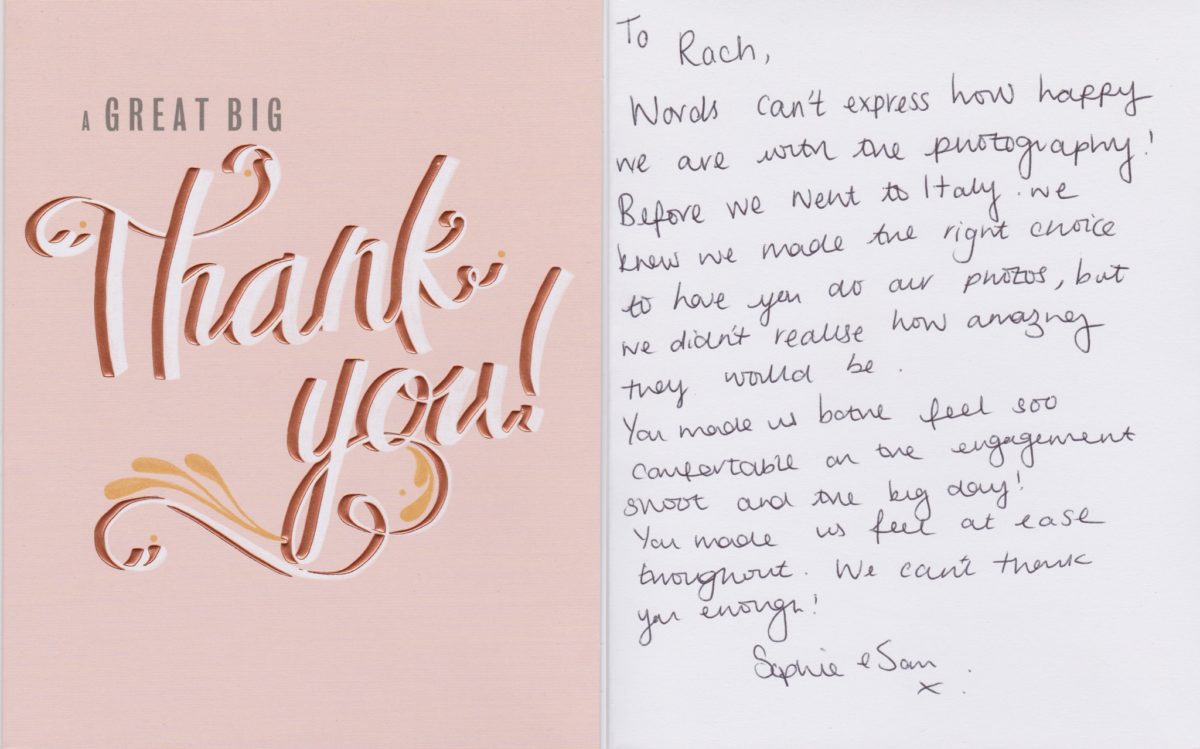 A GREAT BIG
Thank
you!
To Rach,
Words can't express how happy
we are with the photography!
Before we went to Italy. we
knew we made the right choice
to have you do our photos, but
we didn't realise how amazing
they would be.
You made us bothe feel soo
comfortable on the engagement
shoot and the big day!
You made us feel at ease
throughout. We can't thank
you enough!
Sophie & Sam
x